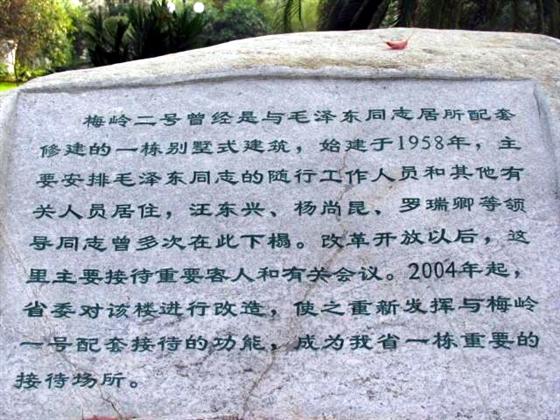 梅岭二号曾经是与毛泽东同志居所配套
修建的一栋别墅式建筑，始建于1958年，主
要安排毛泽东同志的随行工作人员和其他有
关人员居住，汪东兴、杨尚昆、罗瑞卿等领
导同志曾多次在此下榻。改革开放以后，这
里主要接待重要客人和有关会议。2004年起，
省委对该楼进行改造，使之重新发挥与梅岭
一号配套接待的功能，成为我省一栋重要的
接待场所。